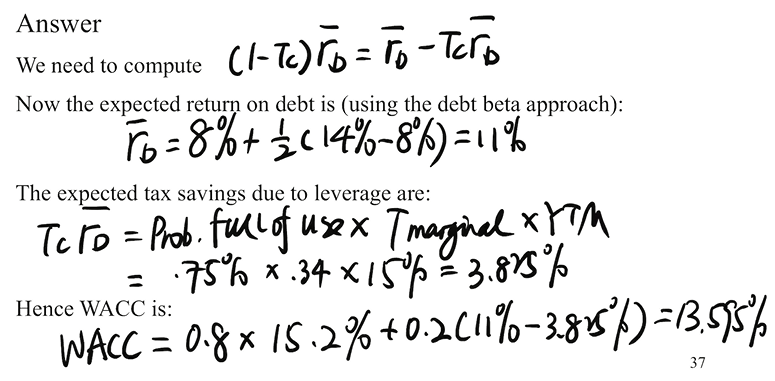 Answer
We need to compute (1-Tc) r̄_D = r̄_D - Tc r̄_D
Now the expected return on debt is (using the debt beta approach):
r̄_D = 8% + 1/2 (14% - 8%) = 11%
The expected tax savings due to leverage are:
Tc r̄_D = Prob. full of use × T marginal × YTM
= .75% × .34 × 15% = 3.825%
Hence WACC is:
WACC = 0.8 × 15.2% + 0.2 (11% - 3.825%) = 13.595%
37